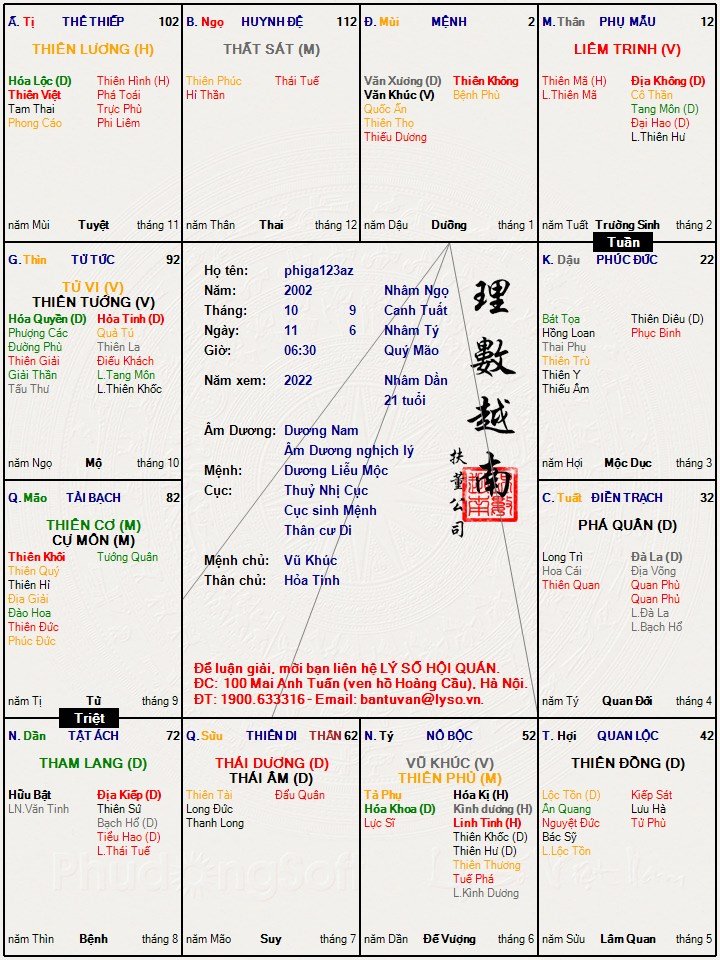 Ấ. Tị THÊ THIẾP 102
THIÊN LƯƠNG (H)
Hóa Lộc (D) Thiên Hình (H)
Thiên Việt Phá Toái
Tam Thai Trực Phù
Phong Cáo Phi Liêm
năm Mùi Tuyệt tháng 11
B. Ngọ HUYNH ĐỆ 112
THẤT SÁT (M)
Thiên Phúc Thái Tuế
Hỉ Thần
năm Thân Thai tháng 12
Đ. Mùi MỆNH 2
Văn Xương (D) Thiên Không
Văn Khúc (V) Bệnh Phù
Quốc Ấn
Thiên Thọ
Thiếu Dương
năm Dậu Dưỡng tháng 1
M. Thân PHỤ MẪU 12
LIÊM TRINH (V)
Thiên Mã (H) Địa Không (D)
L.Thiên Mã Cô Thần
Tang Môn (D)
Đại Hao (D)
L.Thiên Hư
năm Tuất Trường Sinh tháng 2
Tuần
G. Thìn TỬ TỨC 92
TỬ VI (V)
THIÊN TƯỚNG (V)
Hóa Quyền (D) Hỏa Tinh (D)
Phượng Các Quả Tú
Đường Phù Thiên La
Thiên Giải Điếu Khách
Giải Thần L.Tang Môn
Tấu Thư L.Thiên Khốc
năm Ngọ Mộ tháng 10
Họ tên: phiga123az
Năm: 2002 Nhâm Ngọ
Tháng: 10 9 Canh Tuất
Ngày: 11 6 Nhâm Tý
Giờ: 06:30 Quý Mão
Năm xem: 2022 Nhâm Dần
21 tuổi
Âm Dương: Dương Nam
Âm Dương nghịch lý
Mệnh: Dương Liễu Mộc
Cục: Thuỷ Nhị Cục
Cục sinh Mệnh
Thân cư Di
Mệnh chủ: Vũ Khúc
Thân chủ: Hỏa Tinh
理數越南
扶董公司
Để luận giải, mời bạn liên hệ LÝ SỐ HỘI QUÁN.
ĐC: 100 Mai Anh Tuấn (ven hồ Hoàng Cầu), Hà Nội.
ĐT: 1900.633316 - Email: bantuvan@lyso.vn.
K. Dậu PHÚC ĐỨC 22
Bát Tọa Thiên Diêu (D)
Hồng Loan Phục Binh
Thai Phụ
Thiên Trù
Thiên Y
Thiếu Âm
năm Hợi Mộc Dục tháng 3
Q. Mão TÀI BẠCH 82
THIÊN CƠ (M)
CỰ MÔN (M)
Thiên Khôi Tướng Quân
Thiên Quý
Thiên Hỉ
Địa Giải
Đào Hoa
Thiên Đức
Phúc Đức
năm Tị Tử tháng 9
C. Tuất ĐIỀN TRẠCH 32
PHÁ QUÂN (D)
Long Trì Đà La (D)
Hoa Cái Địa Võng
Thiên Quan Quan Phù
Quan Phủ
L.Đà La
L.Bạch Hổ
năm Tý Quan Đới tháng 4
Triệt
N. Dần TẬT ÁCH 72
THAM LANG (D)
Hữu Bật Địa Kiếp (D)
LN.Văn Tinh Thiên Sứ
Bạch Hổ (D)
Tiểu Hao (D)
L.Thái Tuế
năm Thìn Bệnh tháng 8
Q. Sửu THIÊN DI THÂN 62
THÁI DƯƠNG (D)
THÁI ÂM (D)
Thiên Tài Đẩu Quân
Long Đức
Thanh Long
năm Mão Suy tháng 7
N. Tý NÔ BỘC 52
VŨ KHÚC (V)
THIÊN PHỦ (M)
Tả Phụ Hóa Kị (H)
Hóa Khoa (D) Kình dương (H)
Lực Sĩ Linh Tinh (H)
Thiên Khốc (D)
Thiên Hư (D)
Thiên Thương
Tuế Phá
L.Kình Dương
năm Dần Đế Vượng tháng 6
T. Hợi QUAN LỘC 42
THIÊN ĐỒNG (D)
Lộc Tồn (D) Kiếp Sát
Ân Quang Lưu Hà
Nguyệt Đức Tử Phù
Bác Sỹ
L.Lộc Tồn
năm Sửu Lâm Quan tháng 5